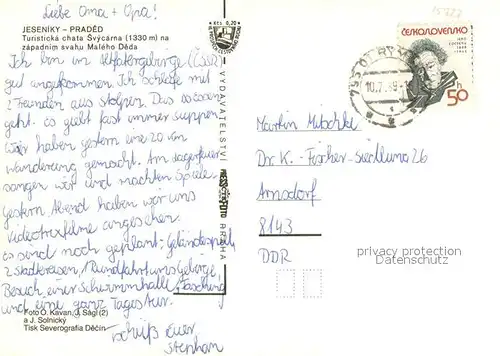 Liebe Oma + Opa!
JESENÍKY – PRADĚD
Turistická chata Švýcárna (1330 m) na
západním svahu Malého Děda
Ich bin im Altvatergebirge (ČSSR)
gut angekommen. Ich schlafe mit
2 Freunden aus Stolpen. Das
geht. es giebt fast immer Suppe.
Wir haben gestern eine 20 km
wanderung gemacht. Am Lagerfeuer
sangen wir und machten Spiele.
Gestern Abend haben wir uns
Videotrixfilme angesehen.
es sind noch geplant: Geländespiel,
2 Stadtreisen, Rundfahrt ins Gebirge,
Besuch einer Schwimmhalle, Fasching
und eine ganz Tages Tour.
Foto O. Kavan, J. Ságl (2)
a J. Solnický
Tisk Severografia Děčín
Tschüß Euer
Stephan
Kčs 0,20
VYDAVATELSTVÍ PRESSFOTO PRAHA
ČESKOSLOVENSKO
50
h
10.7.89
Martin Mitschke
Dr. K.-Fischer-Siedlung 26
Arnsdorf
8143
DDR
privacy protection
Datenschutz